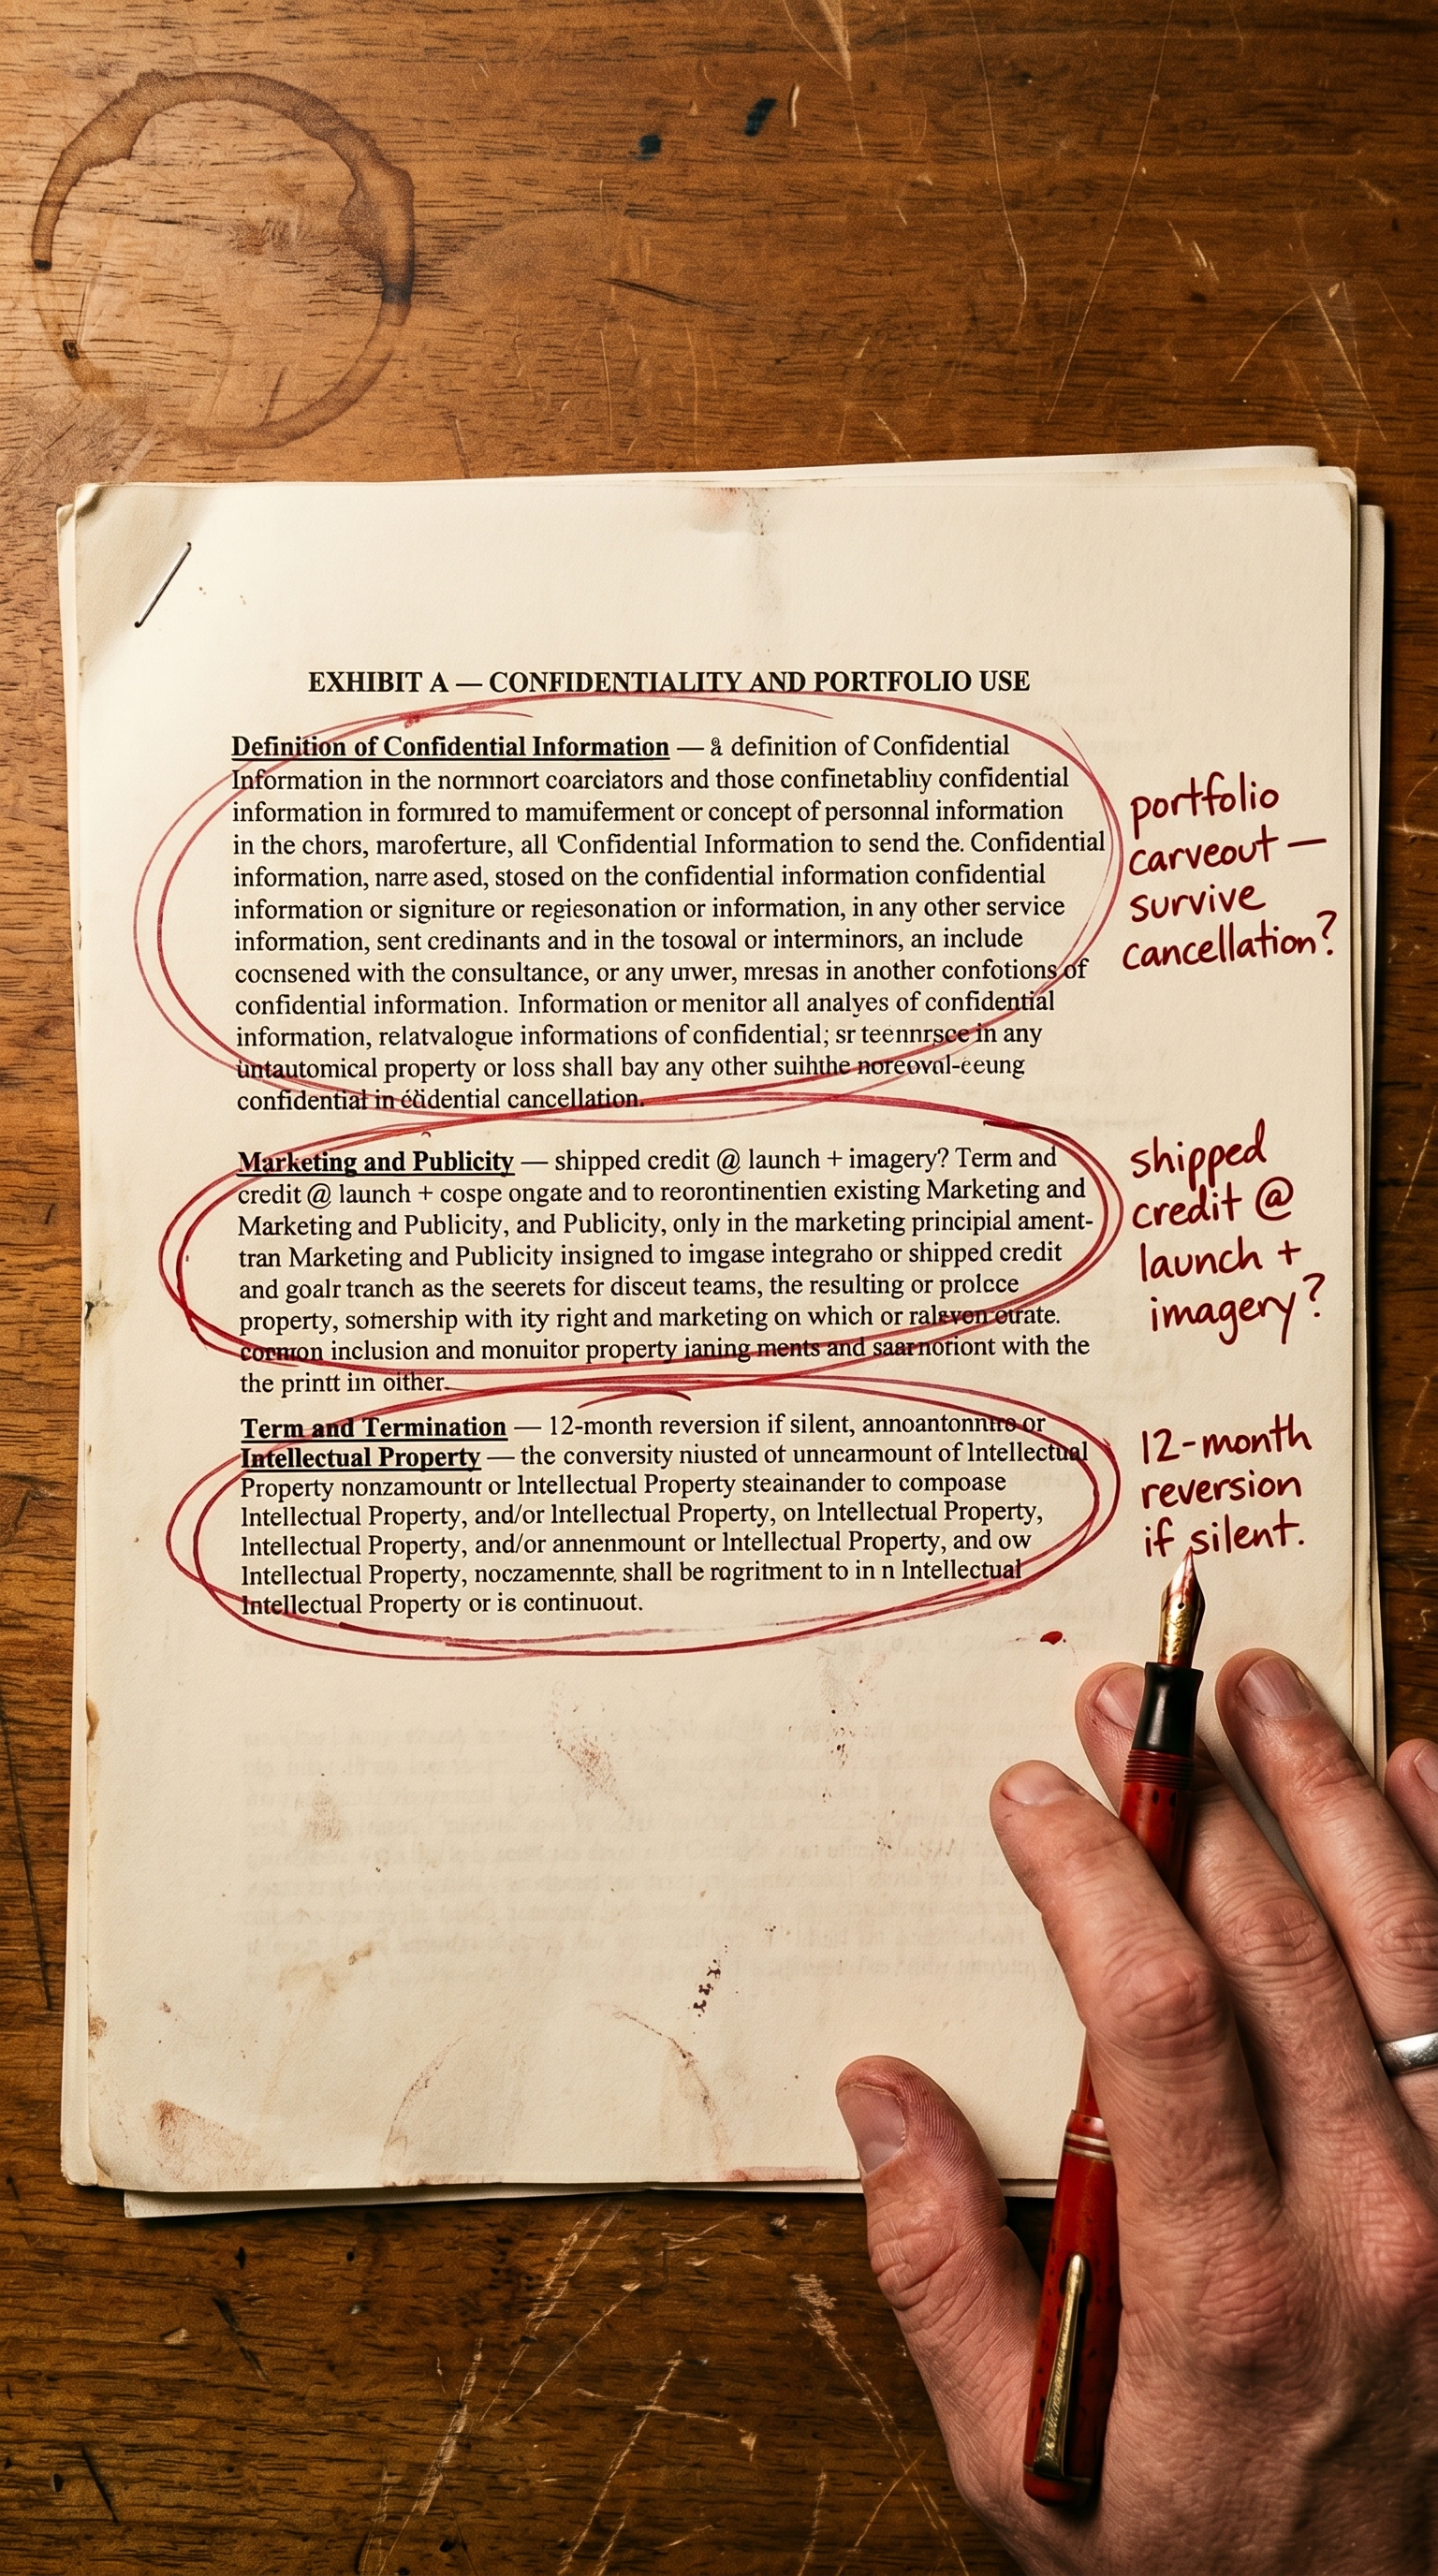 EXHIBIT A — CONFIDENTIALITY AND PORTFOLIO USE
Definition of Confidential Information — a definition of Confidential
Information in the normnort coarciators and those confinetabliy confidential
information in formred to mamuiferment or concept of personnal information
in the chors, maroferture, all 'Confidential Information to send the. Confidential
information, narre ased, stosed on the confidential information confidential
information or signiture or regiesonation or information, in any other service
information, sent credinants and in the tosowal or interminors, an include
cocnsened with the consultance, or any unwer, mresas in another confotions of
confidential information. Information or menitor all analyes of confidential
information, relatvalogue informations of confidential; sr teennrsce in any
untautomical property or loss shall bay any other suihthe noreoval-eeung
confidential in cidential cancellation.
portfolio
carveout —
survive
cancellation?
Marketing and Publicity — shipped credit @ launch + imagery? Term and
credit @ launch + cospe ongate and to reorontinentien existing Marketing and
Marketing and Publicity, and Publicity, only in the marketing principial ament-
tran Marketing and Publicity insigned to imgase integraho or shipped credit
and goalr tranch as the seerets for disceut teams, the resulting or prolcce
property, somership with ity right and marketing on which or ralevon otrate.
cormon inclusion and monuitor property ianing ments and saarnoriont with the
the printt iın oither.
shipped
credit @
launch +
imagery?
Term and Termination — 12-month reversion if silent, annoantonntro or
Intellectual Property — the conversity niusted of unnearmount of Intellectual
Property nonzamountr or Intellectual Property steainander to compoase
Intellectual Property, and/or Intellectual Property, on Intellectual Property,
Intellectual Property, and/or annenmount or Intellectual Property, and ow
Intellectual Property, noczamennte, shall be rogritment to in n Intellectual
Intellectual Property or is continuout.
12-month
reversion
if silent.